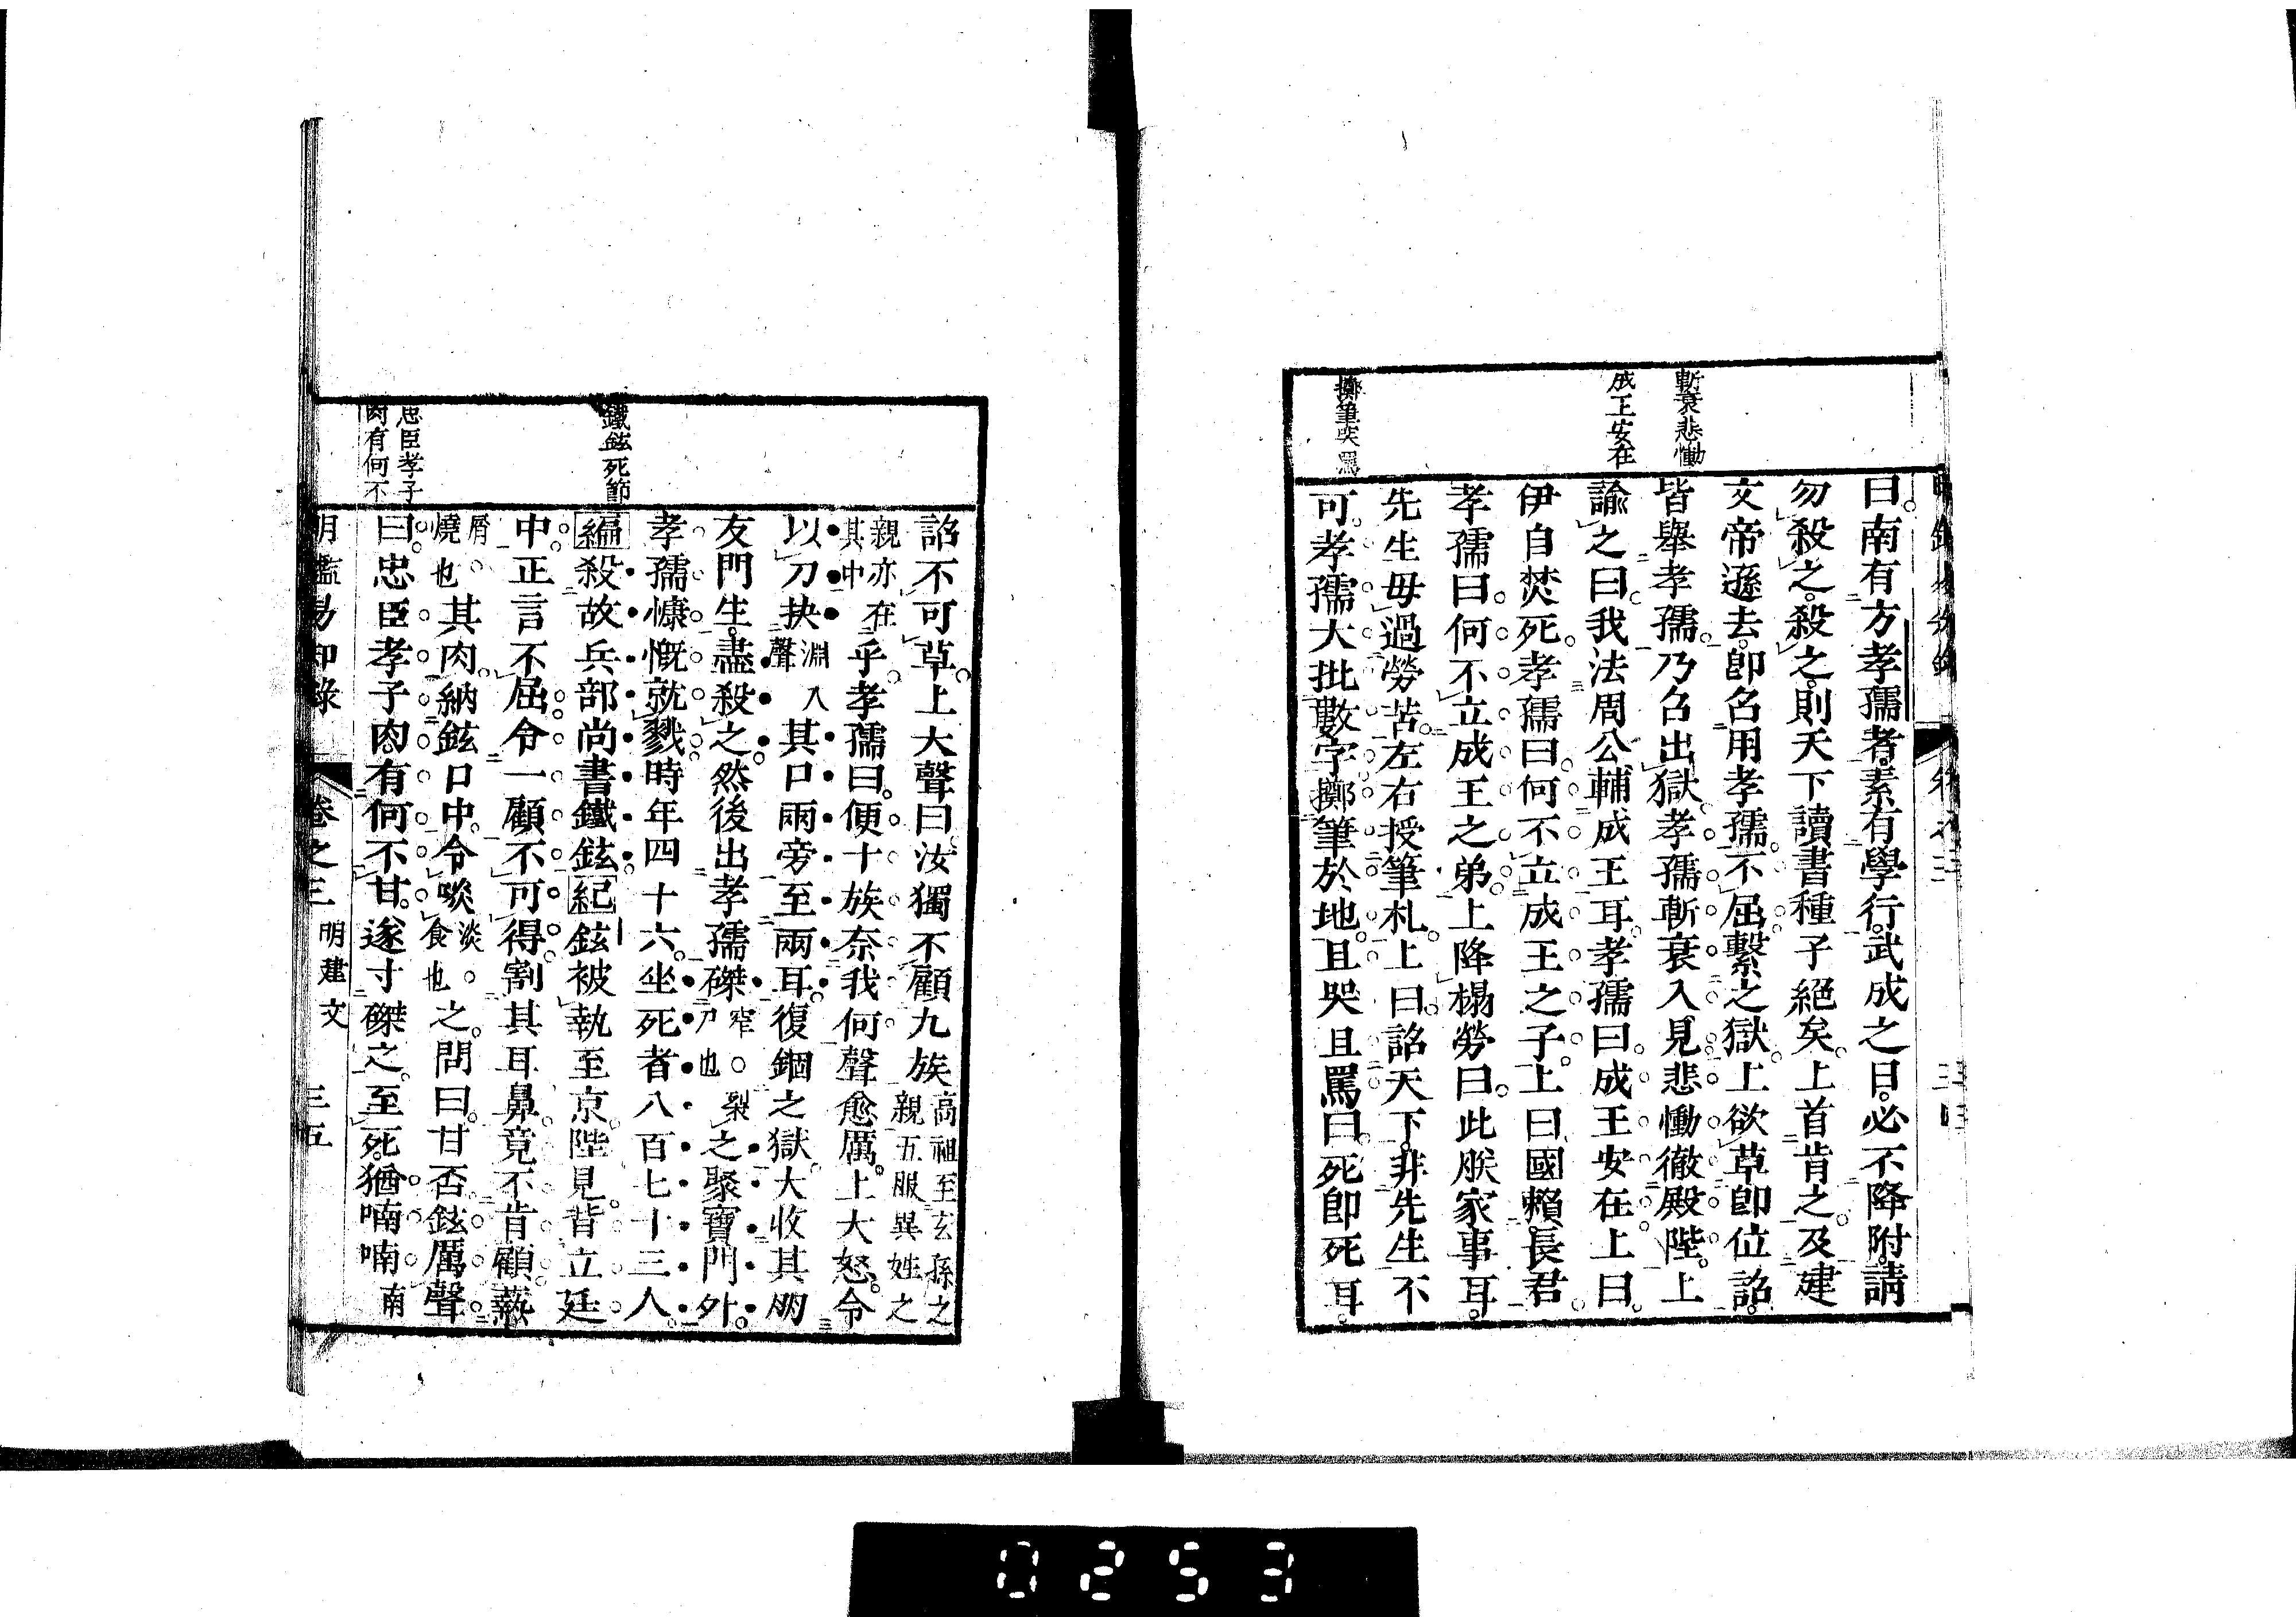 斬衰悲慟
成王安在
擲筆哭罵
曰南有方孝孺者素有學行武成之日必不降附請
勿殺之殺之則天下讀書種子絕矣上首肯之及建
文帝遜去卽召用孝孺不屈繫之獄上欲草卽位詔
皆舉孝孺乃召出獄孝孺斬衰入見悲慟徹殿陛上
諭之曰我法周公輔成王耳孝孺曰成王安在上曰
伊自焚死孝孺曰何不立成王之子上曰國賴長君
孝孺曰何不立成王之弟上降榻勞曰此朕家事耳
先生毋過勞苦左右授筆札上曰詔天下非先生不
可孝孺大批數字擲筆於地且哭且罵曰死卽死耳
鐵鉉死節
忠臣孝子
肉有何不
詔不可草上大聲曰汝獨不顧九族高祖至玄孫之親五服異姓之
親亦在其中乎孝孺曰便十族奈我何聲愈厲上大怒令
以刀抉淵入聲其口兩旁至兩耳復錮之獄大收其朋
友門生盡殺之然後出孝孺磔窄○裂尸也之聚寶門外
孝孺慷慨就戮時年四十六坐死者八百七十三人
編殺故兵部尚書鐵鉉紀鉉被執至京陛見背立廷
中正言不屈令一顧不可得割其耳鼻竟不肯顧爇
屑○燒也其肉納鉉口中令啖淡○食也之問曰甘否鉉厲聲
曰忠臣孝子肉有何不甘遂寸磔之至死猶喃喃南
明鑑易知錄 卷之三 明建文 三五
0253